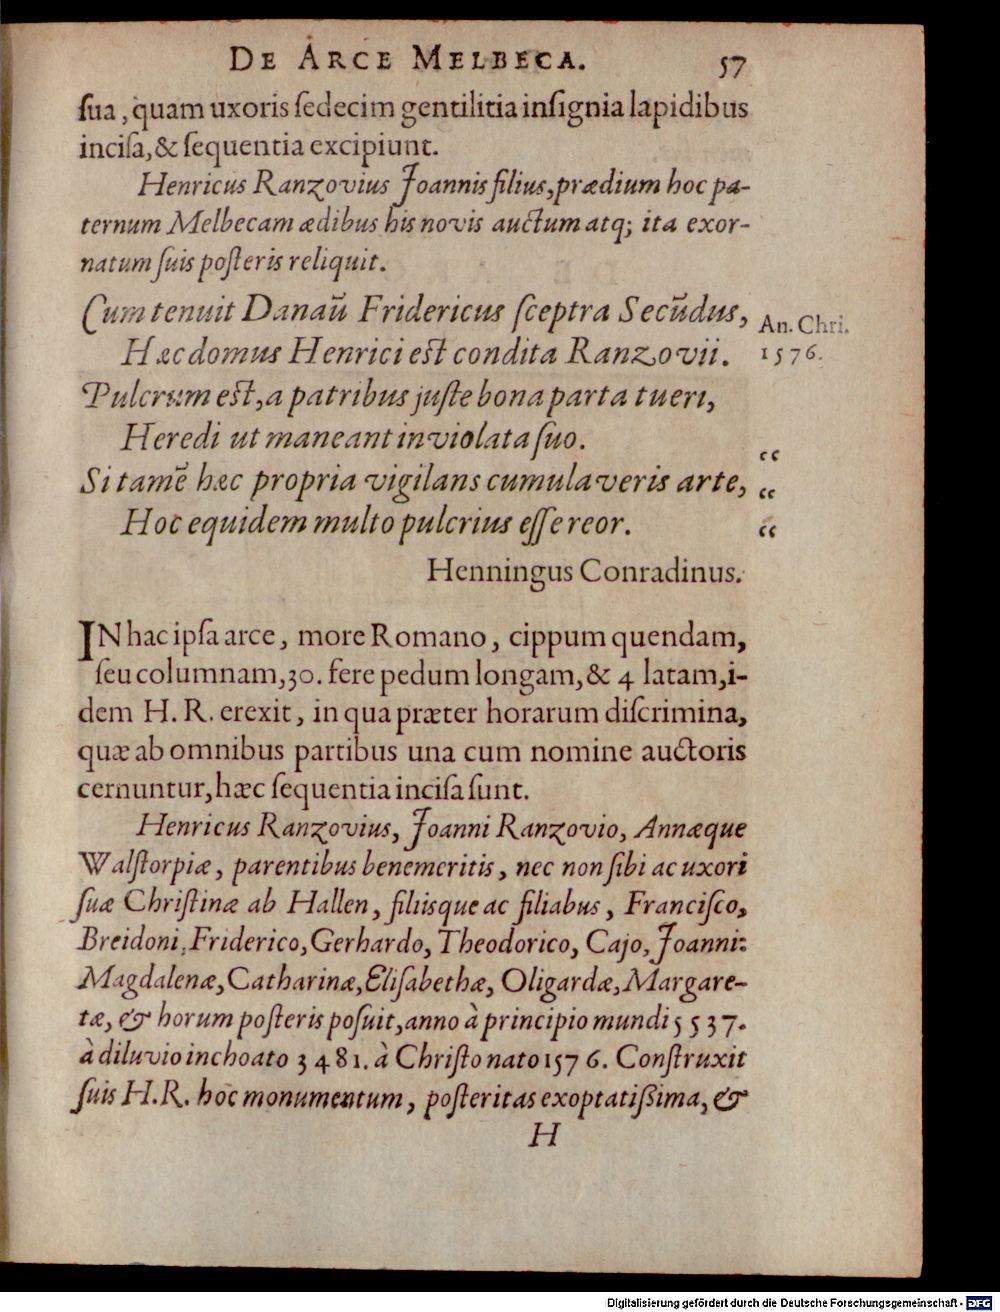 DE ARCE MELBECA. 57
ſua, quam uxoris ſedecim gentilitia inſignia lapidibus
inciſa, & ſequentia excipiunt.
Henricus Ranzovius Joannis filius, prædium hoc pa-
ternum Melbecam ædibus his novis auctum atq; ita exor-
natum ſuis poſteris reliquit.
Cum tenuit Danaū Fridericus ſceptra Secūdus,
An. Chri.
Hæc domus Henrici eſt condita Ranzovii.
1576.
Pulcrum eſt, a patribus juſte bona parta tueri,
Heredi ut maneant inviolata ſuo.
“
Si tamē hæc propria vigilans cumulaveris arte,
“
Hoc equidem multo pulcrius eſſe reor.
“
Henningus Conradinus.
IN hac ipſa arce, more Romano, cippum quendam,
ſeu columnam, 30. fere pedum longam, & 4 latam, i-
dem H. R. erexit, in qua præter horarum diſcrimina,
quæ ab omnibus partibus una cum nomine auctoris
cernuntur, hæc ſequentia inciſa ſunt.
Henricus Ranzovius, Joanni Ranzovio, Annæque
Walſtorpiæ, parentibus benemeritis, nec non ſibi ac uxori
ſuæ Chriſtinæ ab Hallen, filiisque ac filiabus, Franciſco,
Breidoni, Friderico, Gerhardo, Theodorico, Cajo, Joanni:
Magdalenæ, Catharinæ, Eliſabethæ, Oligardæ, Margare-
tæ, & horum poſteris poſuit, anno à principio mundi 5537.
à diluvio inchoato 3481. à Chriſto nato 1576. Conſtruxit
ſuis H. R. hoc monumentum, poſteritas exoptatißima, &
H
Digitalisierung gefördert durch die Deutsche Forschungsgemeinschaft - DFG